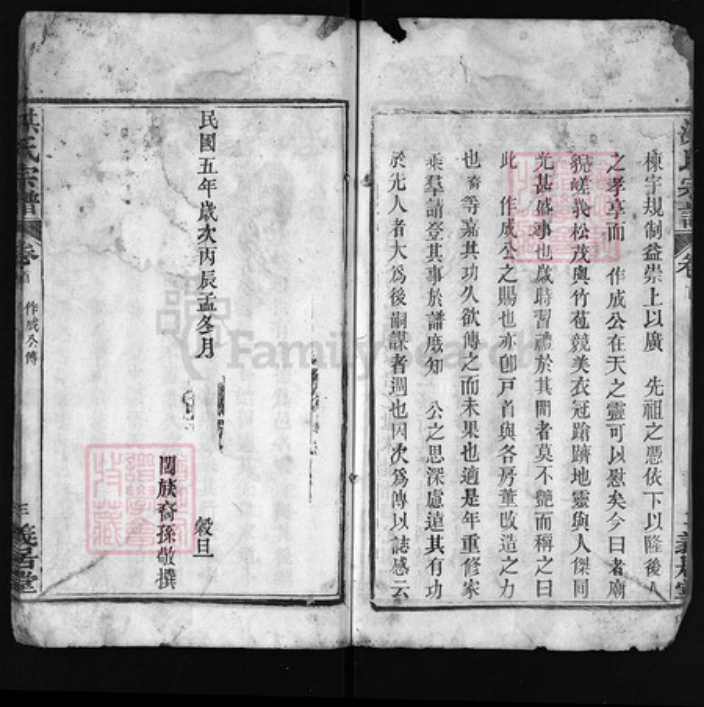 棟宇規制益崇上以廣　先祖之憑依下以隆後人
之孝享而　作成公在天之靈可以慰矣今日者廟
貌嵯峨松茂與竹苞競美衣冠蹌躋地靈與人傑同
光甚盛事也歲時習禮於其間者莫不艷而稱之曰
此　作成公之賜也亦卽戶首與各房董改造之力
也裔等嘉其功久欲傳之而未果也適是年重修家
乘羣請登其事於譜庶知　公之思深慮遠其有功
於先人者大爲後嗣謀者週也因次爲傳以誌感云
民國五年歲次丙辰孟冬月　穀旦
闔族裔孫敬撰
洪氏宗譜　卷首　作成公傳　義居堂
FamilySearch